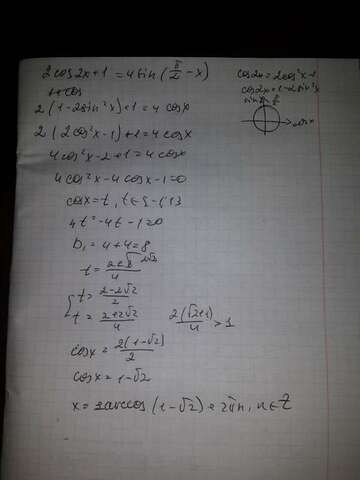 2cos2x+1 = 4sin(π/2 - x)
2(1-2sin²x)+1 = 4cosx
2(2cos²x-1)+1 = 4cosx
4cos²x-2+1 = 4cosx
4cos²x-4cosx-1=0
cosx=t, t∈[-1;1]
4t²-4t-1=0
D₁=4+4=8
t=(2±√8)/4 2√2
t=(2-2√2)/2
t=(2+2√2)/4 2(√2+1)/4 > 1
cosx=2(1-√2)/2
cosx=1-√2
x=±arccos(1-√2)+2πn, n∈Z
cos2x=2cos²x-1
cos2x=1-2sin²x
sin
cosx